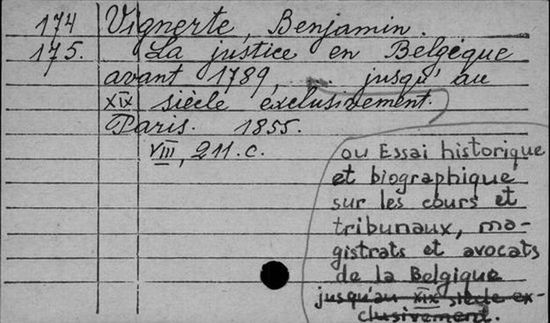 174 Vignerte, Benjamin.
175. La justice en Belgique
avant 1789, ... jusqu'au
XIX siècle exclusivement.
Paris. 1855.
VIII, 211.c.
ou Essai historique
et biographique
sur les cours et
tribunaux, ma-
gistrats et avocats
de la Belgique
jusqu'au XIX siècle ex-
clusivement.